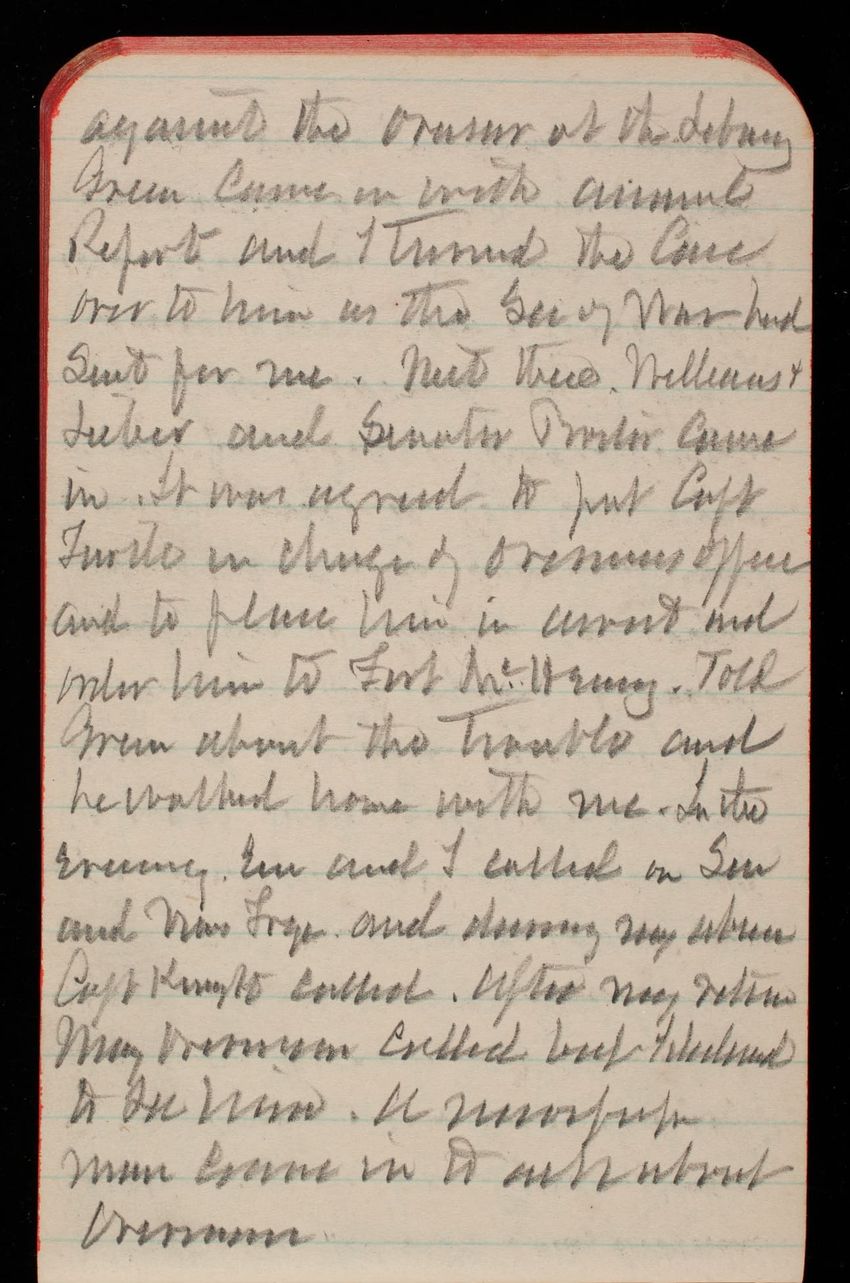 against the at the Library
Green came in with annual
Report and I turned the Case
over to him as the Sec of War had
Sent for me. Met there. Williams &
Lieber and Senator Proctor came
in. It was agreed to put Capt
Turtle in charge of Overmans office
and to place him in arrest and
order him to Fort McHenry. Told
Green about the Trouble and
he walked home with me. In the
Evening. Em and I called on Gen
and Mrs and during my absence
Capt Knight called. After my return
Maj Overman called but I declined
to see him. A newspaper
man came in to ask about
Overman